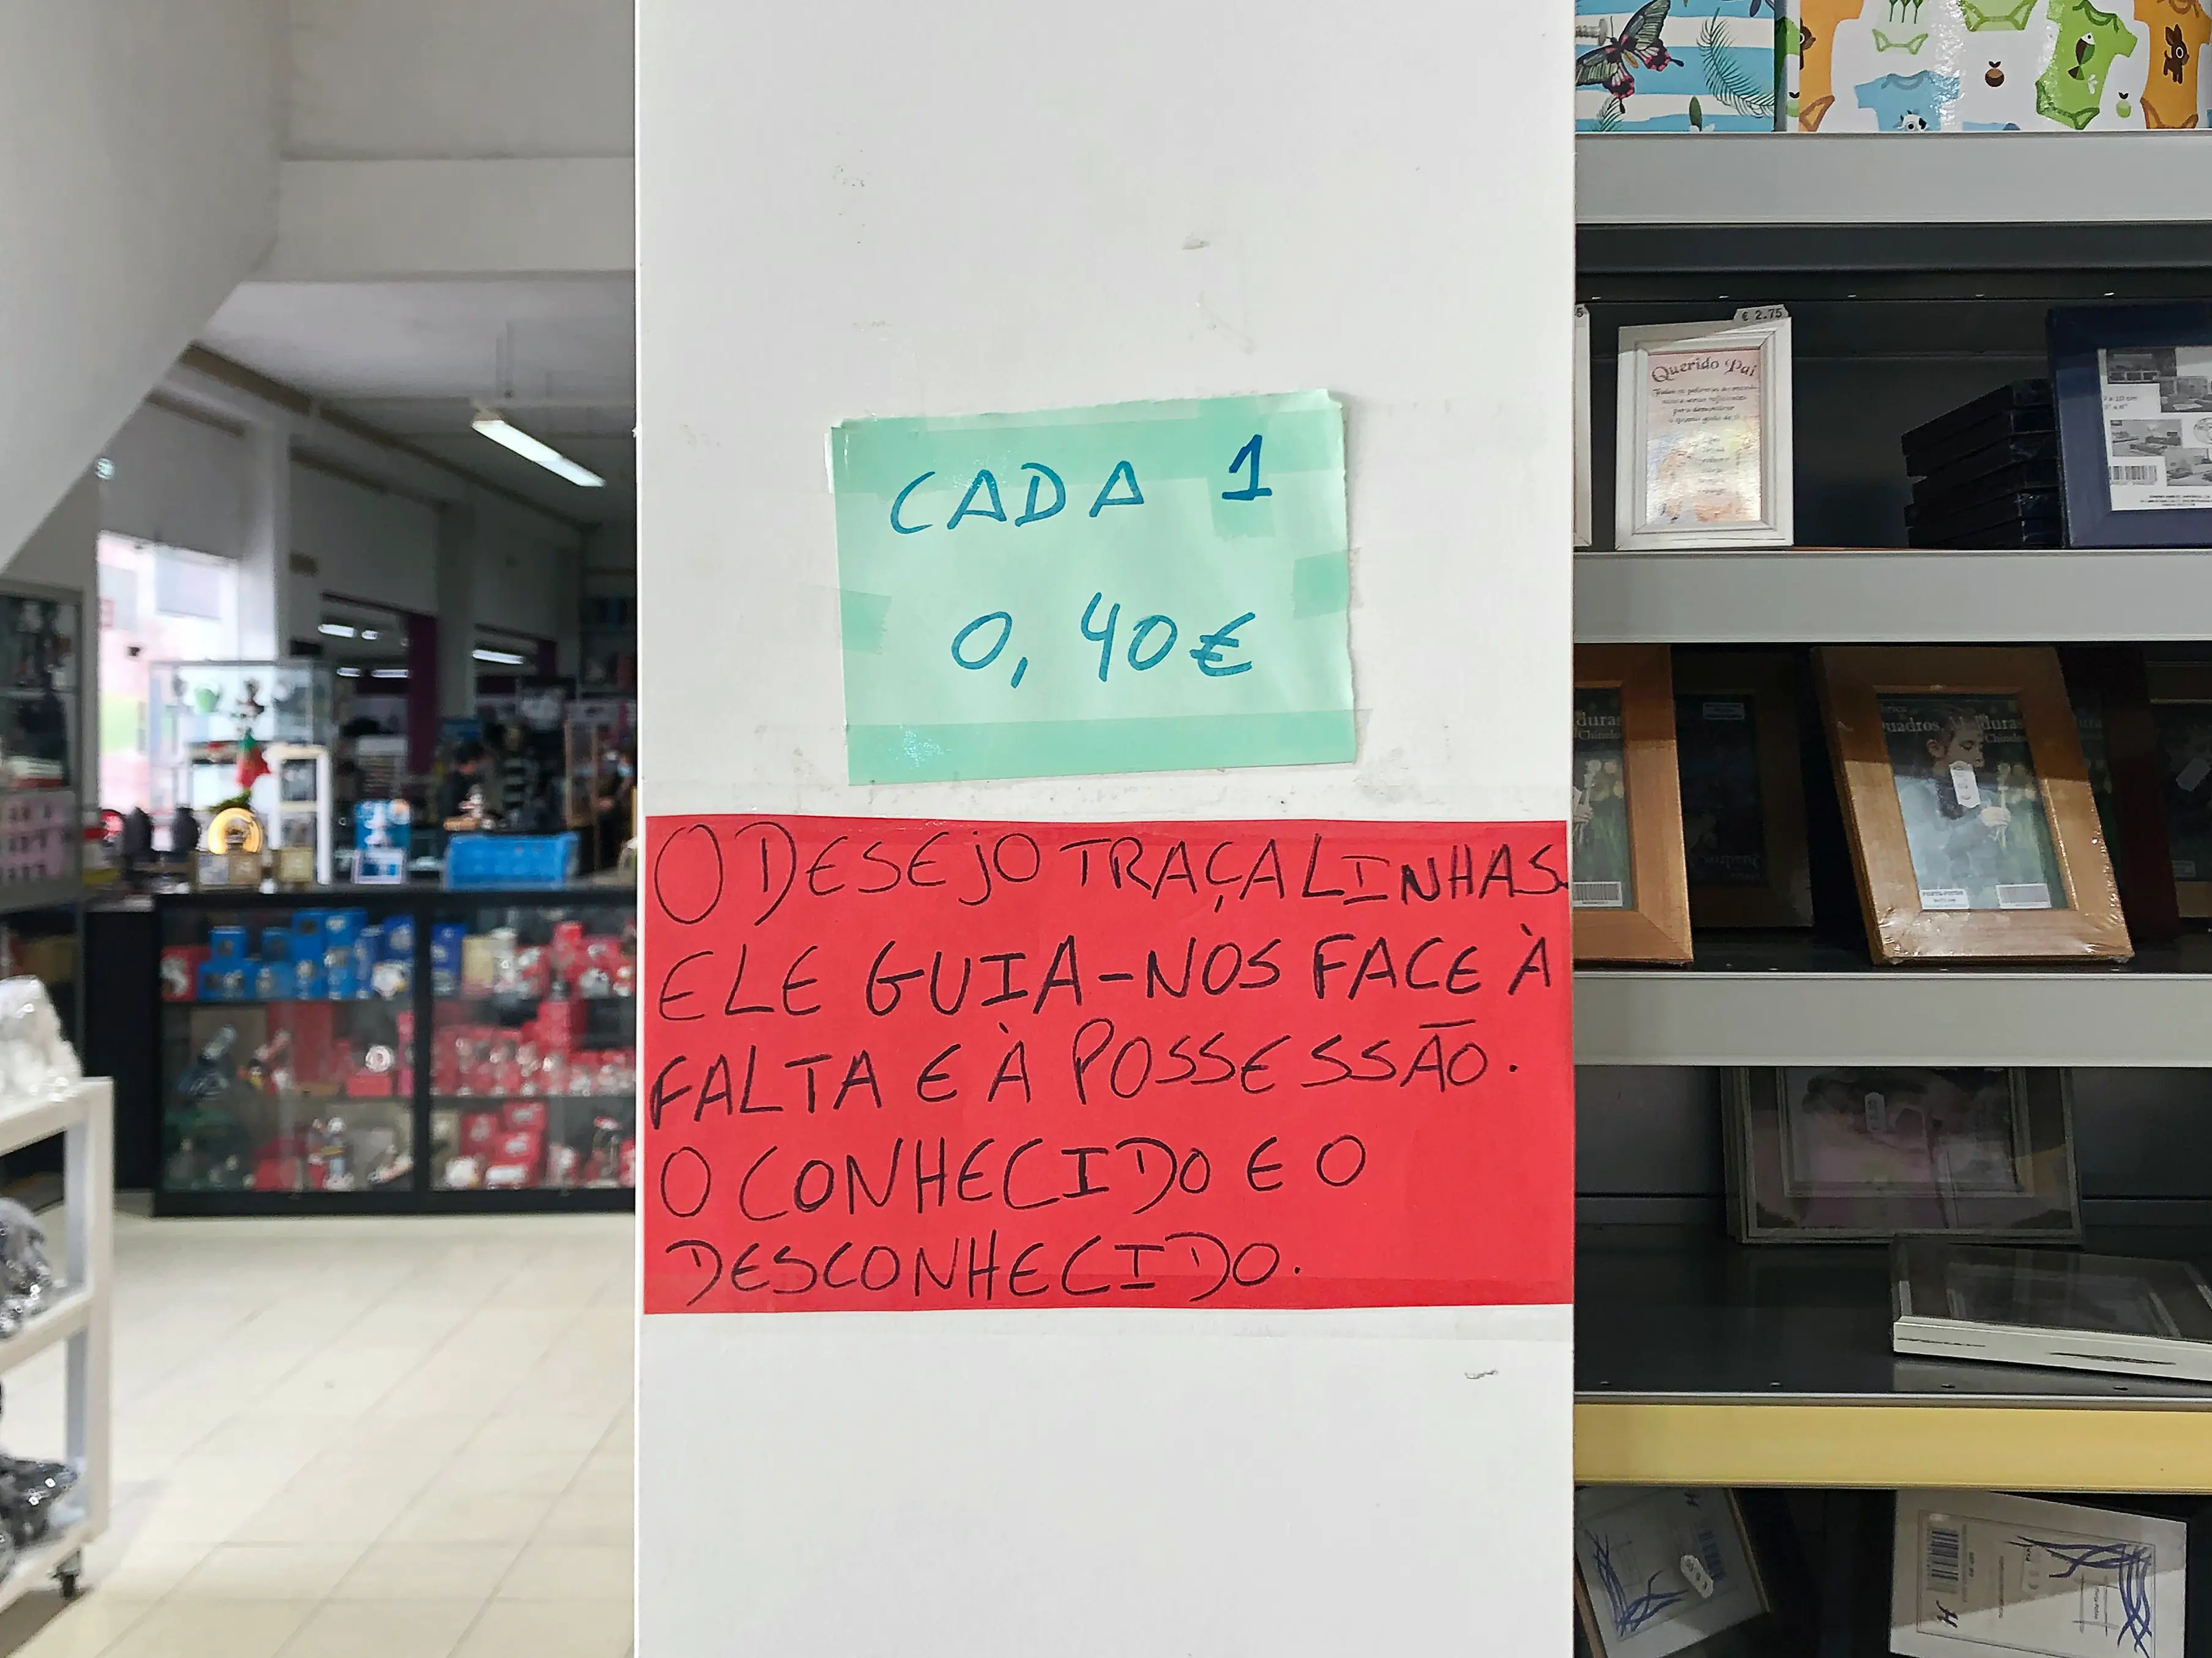 CADA 1
0,40€
O DESEJO TRAÇA LINHAS.
ELE GUIA-NOS FACE À
FALTA E À POSSESSÃO.
O CONHECIDO E O
DESCONHECIDO.
€ 2.75
Querido Pai
duras
Chinelo
uadros, M lduras
Chinelo